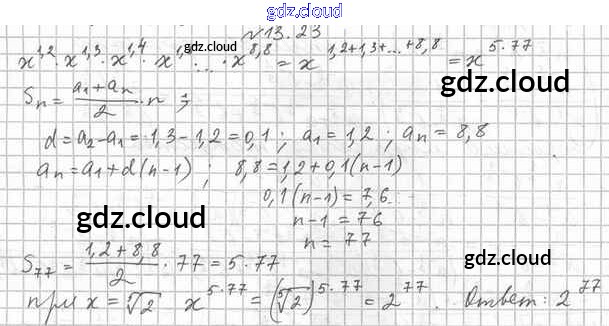 gdz.cloud
№13.23
x^1,2 · x^1,3 · x^1,4 · x^1, ... · x^8,8 = x^(1,2+1,3+...+8,8) = x^5·77
gdz.cloud
gdz.cloud
Sn = (a1+an)/2 · n ;
d = a2 − a1 = 1,3 − 1,2 = 0,1 ; a1 = 1,2 ; an = 8,8
an = a1 + d(n−1) ; 8,8 = 1,2 + 0,1(n−1)
0,1(n−1) = 7,6
n−1 = 76
n = 77
gdz.cloud
gdz.cloud
S77 = (1,2+8,8)/2 · 77 = 5·77
при x = ⁵√2 x^5·77 = (⁵√2)^5·77 = 2^77. Ответ: 2^77